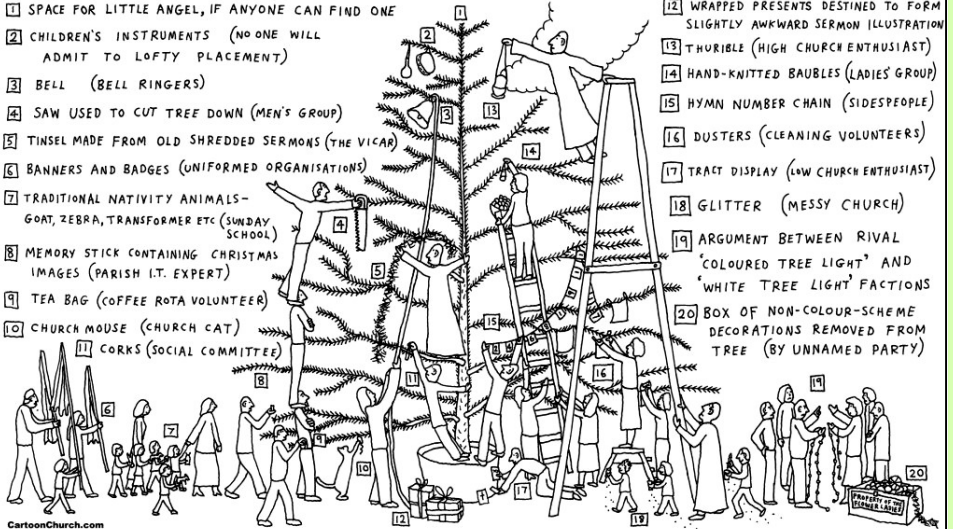 1 SPACE FOR LITTLE ANGEL, IF ANYONE CAN FIND ONE
2 CHILDREN'S INSTRUMENTS (NO ONE WILL
ADMIT TO LOFTY PLACEMENT)
3 BELL (BELL RINGERS)
4 SAW USED TO CUT TREE DOWN (MEN'S GROUP)
5 TINSEL MADE FROM OLD SHREDDED SERMONS (THE VICAR)
6 BANNERS AND BADGES (UNIFORMED ORGANISATIONS)
7 TRADITIONAL NATIVITY ANIMALS-
GOAT, ZEBRA, TRANSFORMER ETC (SUNDAY
SCHOOL)
8 MEMORY STICK CONTAINING CHRISTMAS
IMAGES (PARISH I.T. EXPERT)
9 TEA BAG (COFFEE ROTA VOLUNTEER)
10 CHURCH MOUSE (CHURCH CAT)
11 CORKS (SOCIAL COMMITTEE)
12 WRAPPED PRESENTS DESTINED TO FORM
SLIGHTLY AWKWARD SERMON ILLUSTRATION
13 THURIBLE (HIGH CHURCH ENTHUSIAST)
14 HAND-KNITTED BAUBLES (LADIES' GROUP)
15 HYMN NUMBER CHAIN (SIDESPEOPLE)
16 DUSTERS (CLEANING VOLUNTEERS)
17 TRACT DISPLAY (LOW CHURCH ENTHUSIAST)
18 GLITTER (MESSY CHURCH)
19 ARGUMENT BETWEEN RIVAL
'COLOURED TREE LIGHT' AND
'WHITE TREE LIGHT' FACTIONS
20 BOX OF NON-COLOUR-SCHEME
DECORATIONS REMOVED FROM
TREE (BY UNNAMED PARTY)
1
2
3
13
14
4
5
15
16
8
11
19
6
7
9
10
17
20
12
18
PROPERTY OF THE
FLOWER LADIES
CartoonChurch.com